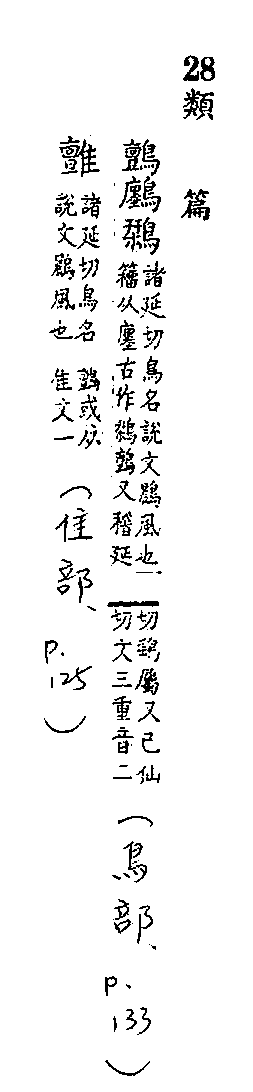 28類 篇
鸇鷐鷣諸延切鳥名說文鷐風也一
籒从廛古作鷣鸇又稽延
切鷄屬又已仙
切文三重音二
（鳥部、p.133）
䧶諸延切鳥名
說文鷐風也
鸇或从
隹文一
（隹部、p.125）